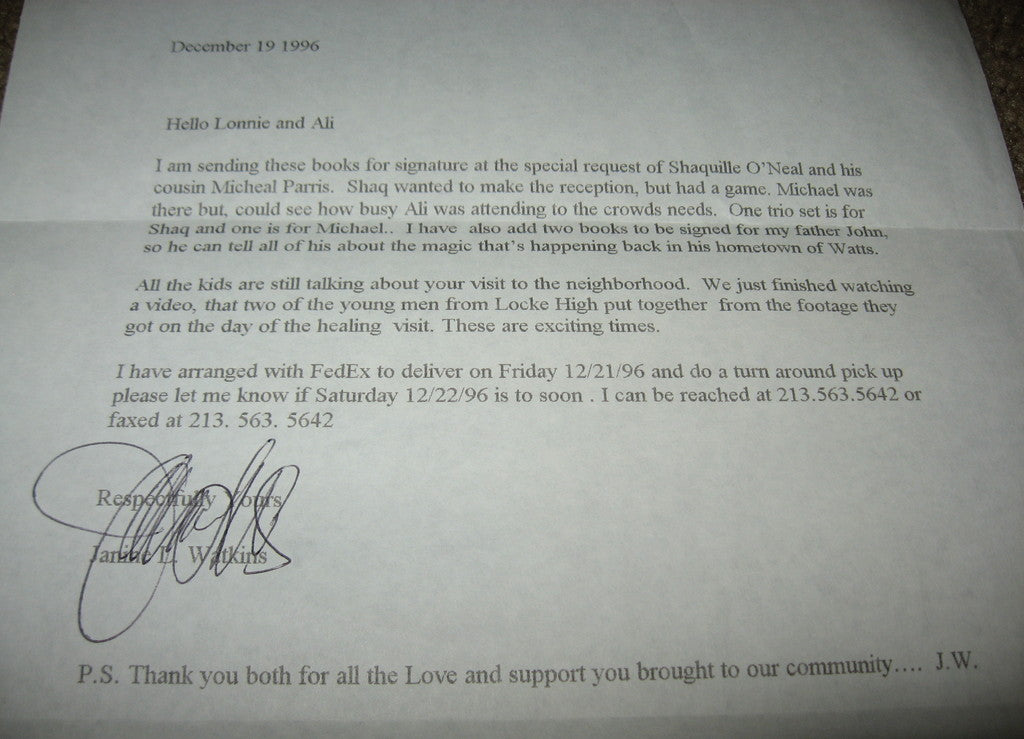 December 19 1996
Hello Lonnie and Ali
I am sending these books for signature at the special request of Shaquille O'Neal and his
cousin Micheal Parris. Shaq wanted to make the reception, but had a game. Michael was
there but, could see how busy Ali was attending to the crowds needs. One trio set is for
Shaq and one is for Michael.. I have also add two books to be signed for my father John,
so he can tell all of his about the magic that's happening back in his hometown of Watts.
All the kids are still talking about your visit to the neighborhood. We just finished watching
a video, that two of the young men from Locke High put together from the footage they
got on the day of the healing visit. These are exciting times.
I have arranged with FedEx to deliver on Friday 12/21/96 and do a turn around pick up
please let me know if Saturday 12/22/96 is to soon . I can be reached at 213.563.5642 or
faxed at 213. 563. 5642
Respectfully Yours
Janine L. Watkins
P.S. Thank you both for all the Love and support you brought to our community.... J.W.